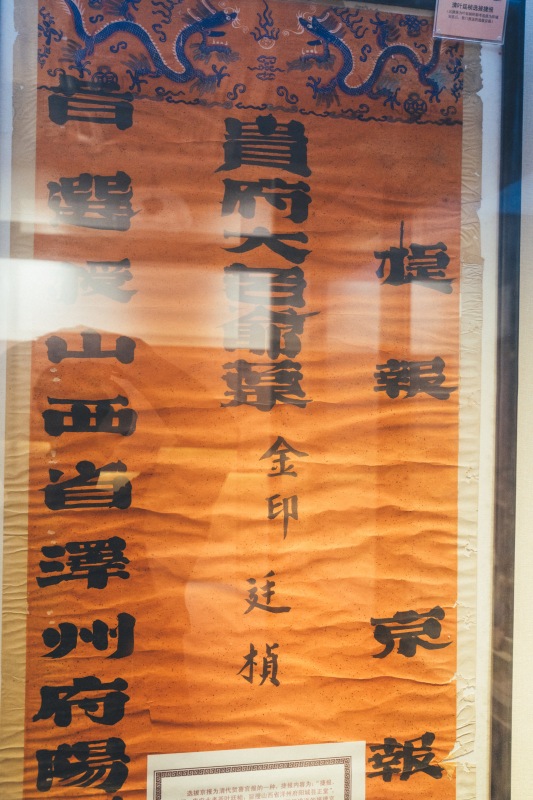 捷報京報
貴府大老爺葉金印廷楨
旨選授山西省澤州府陽